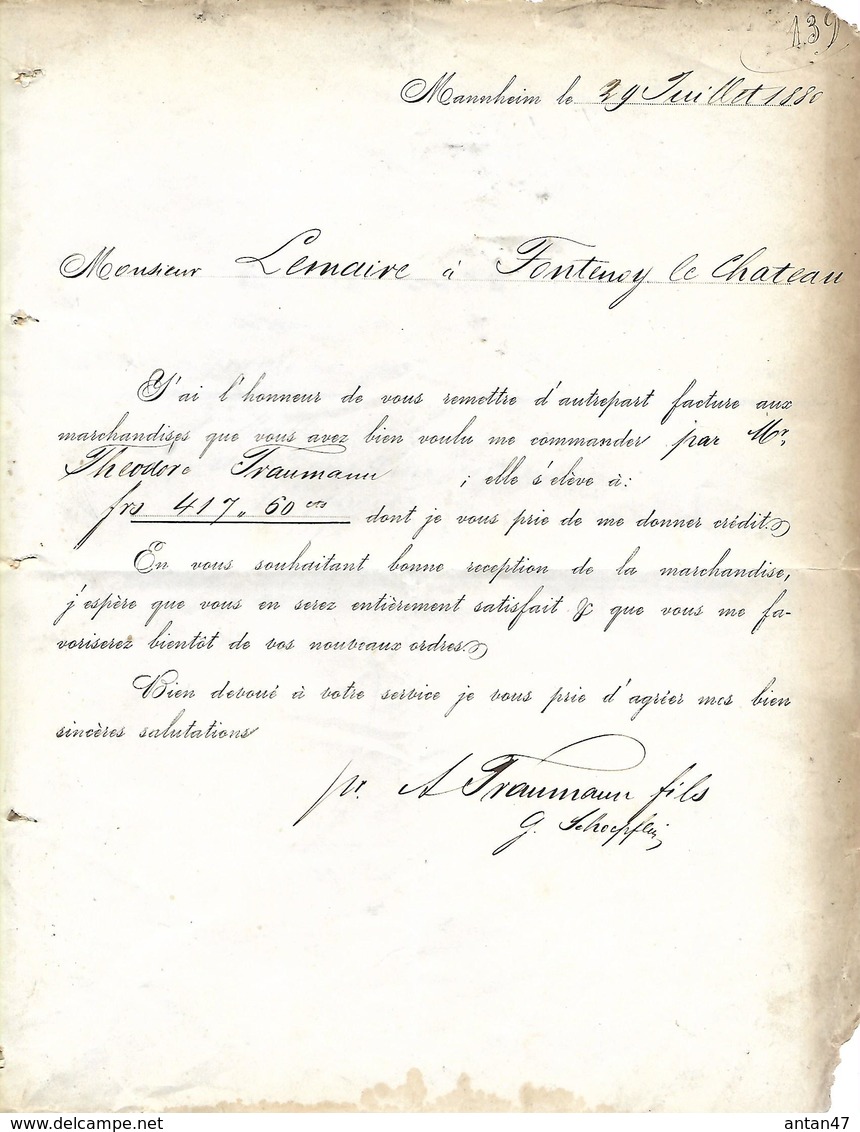 139
Mannheim le 29 Juillet 1880
Monsieur Lemaire à Fontenoy le Chateau
J'ai l'honneur de vous remettre d'autrepart facture aux
marchandises que vous avez bien voulu me commander par Mr.
Théodore Traumann ; elle s'elève à:
frs 417 „ 60 cts dont je vous prie de me donner crédit.
En vous souhaitant bonne reception de la marchandise,
j'espère que vous en serez entièrement satisfait & que vous me fa-
voriserez bientôt de vos nouveaux ordres.
Bien devoué à votre service je vous prie d'agréer mes bien
sincères salutations
pr. A Traumann fils
G. Schoepflin
www.delcampe.net
antan47